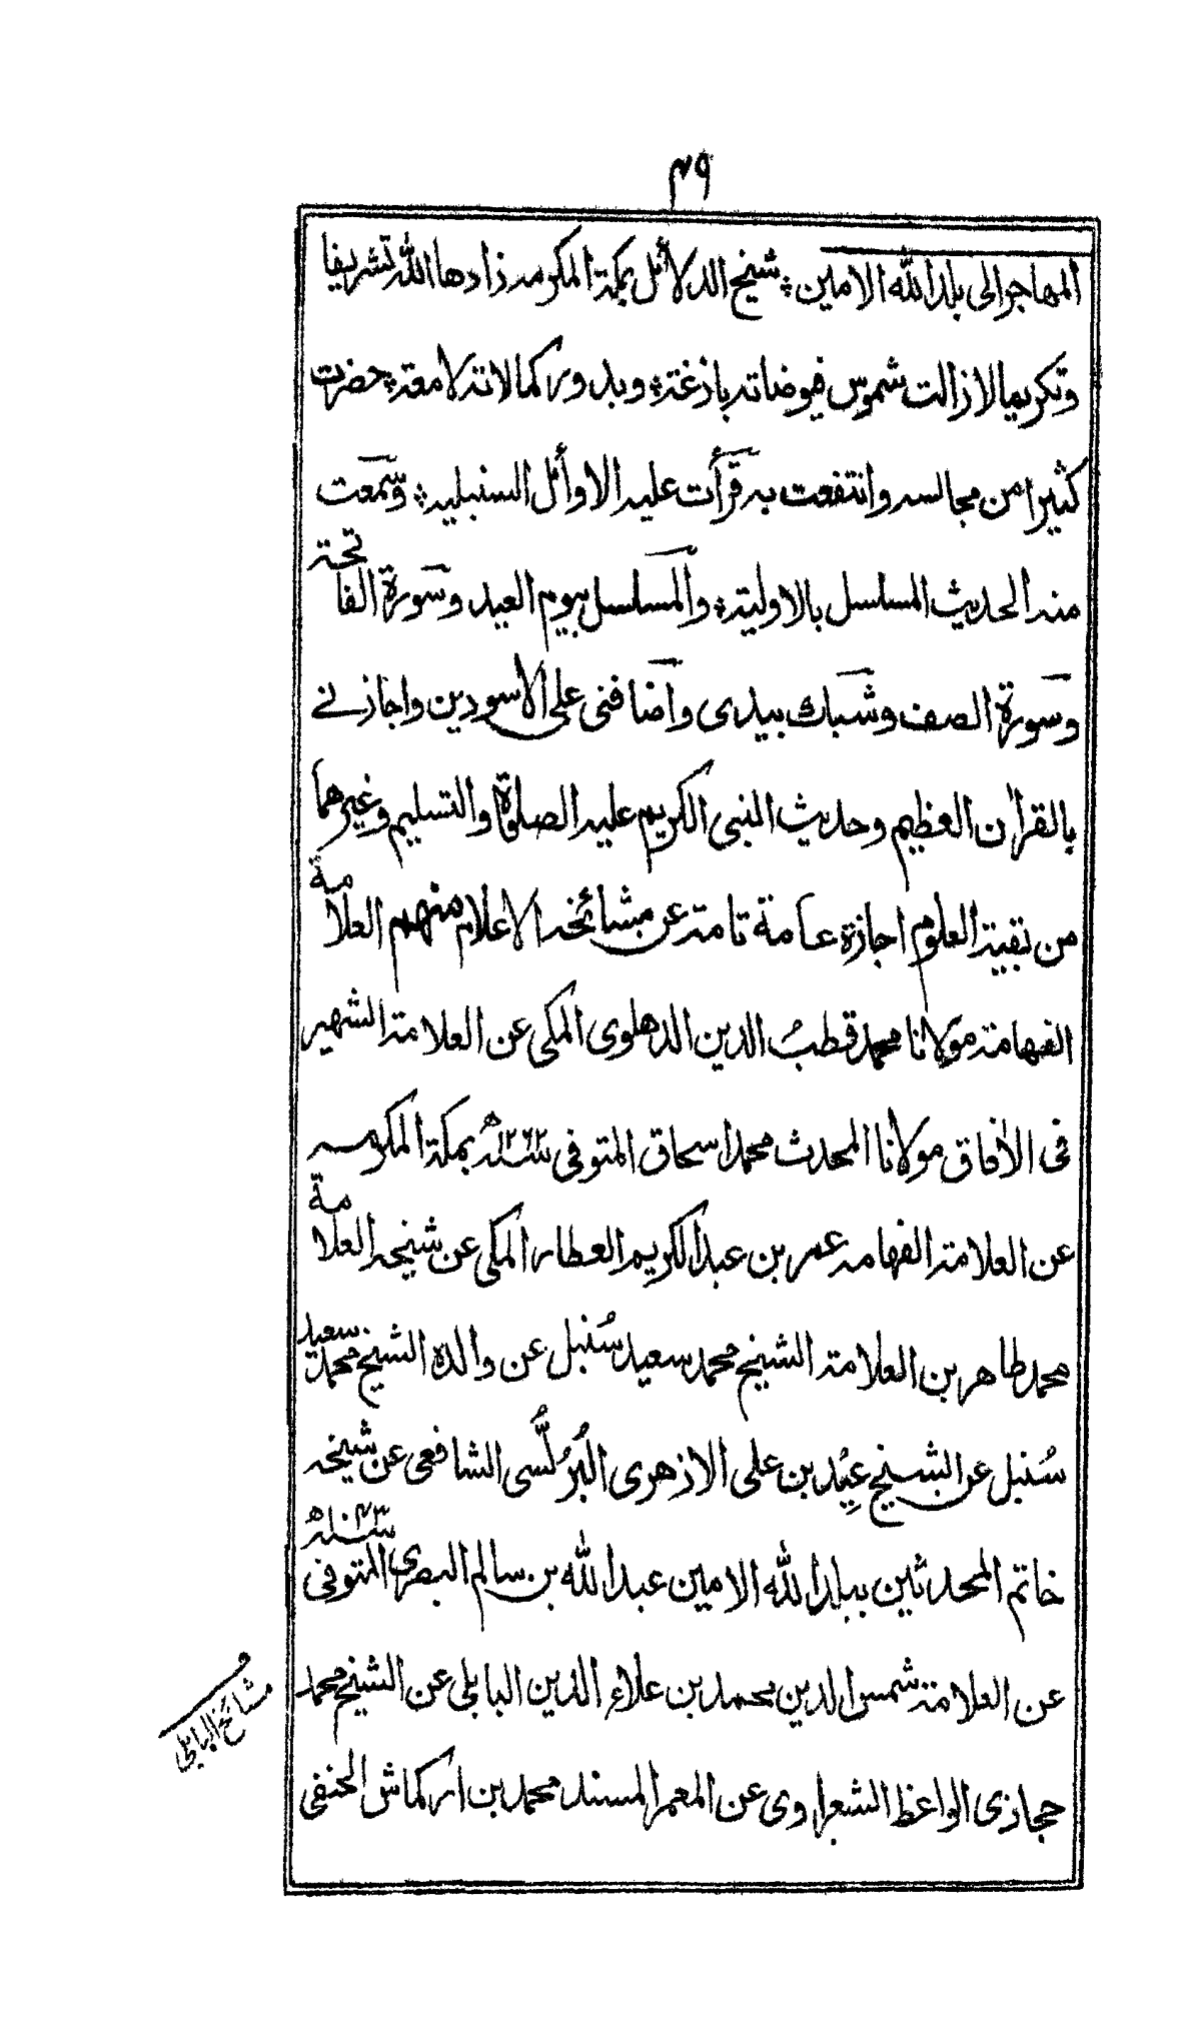 ٤٩
المهاجر الى بلد الله الامين ؛ شيخ الدلائل بمكة المكرمه زادها الله تشريفا
وتكريما لا زالت شموس فيوضاته بازغة ؛ وبدور كمالاته لامعة ؛ حضرت
كثيرا من مجالسه وانتفعت به قرأت عليه الاوائل السنبلية ؛ وسمعت
منه الحديث المسلسل بالاولية ؛ والمسلسل بيوم العيد وسورة الفاتحة
وسورة الصف وشبك بيدى واضافنى على الاسودين واجازنے
بالقرآن العظيم وحديث النبى الكريم عليه الصلوة والتسليم وغيرهما
من بقية العلوم اجازة عامة تامة عن مشائخه الاعلام منهم العلامة
الفهامة مولانا محمد قطبُ الدين الدهلوى المكى عن العلامة الشهير
فى الآفاق مولانا المحدث محمد اسحاق المتوفى سنة ١٢٦٢ھ بمكة المكرمه
عن العلامة الفهامه عمر بن عبد الكريم العطار المكى عن شيخه العلامة
محمد طاهر بن العلامة الشيخ محمد سعيد سُنبل عن والده الشيخ محمد سعيد
سُنبل عن الشيخ عِيْد بن على الازهرى البُرُلُّسى الشافعى عن شيخه
خاتم المحدثين ببلد الله الامين عبد الله بن سالم البصرى المتوفى سنة ھ
عن العلامة شمس الدين محمد بن علاء الدين البابلى عن الشيخ محمد
حجازى الواعظ الشعراوى عن المعمر المسند محمد بن اركماش الحنفى
مشائخ البابلى